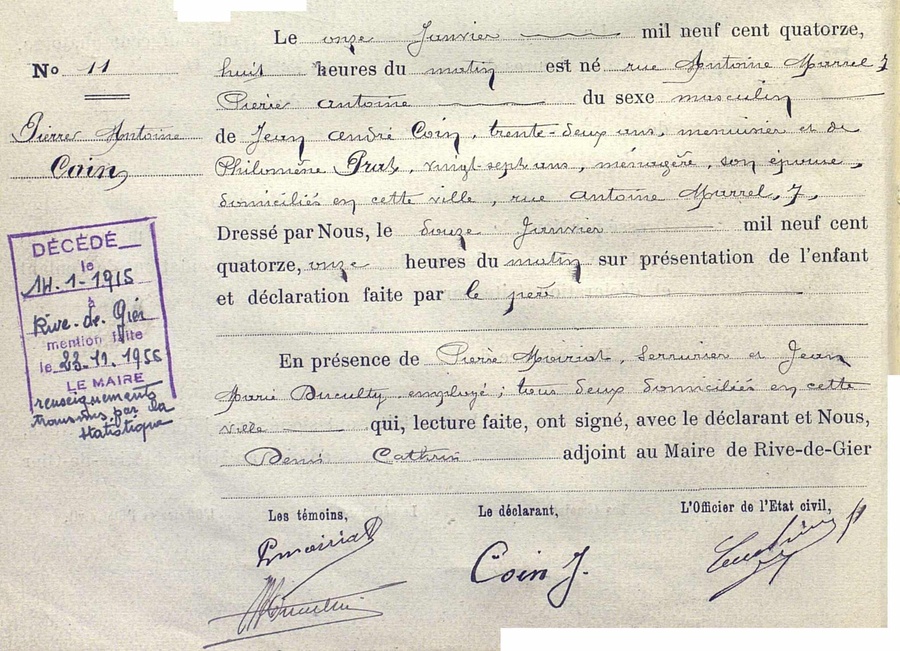 No 11
Pierre Antoine
Coin
Le onze Janvier mil neuf cent quatorze,
huit heures du matin est né rue Antoine Marrel 7
Pierre Antoine du sexe masculin
de Jean André Coin, trente-deux ans, menuisier et de
Philomène Prat, vingt-sept ans, ménagère, son épouse,
domiciliés en cette ville, rue Antoine Marrel, 7,
Dressé par Nous, le douze Janvier mil neuf cent
quatorze, onze heures du matin sur présentation de l'enfant
et déclaration faite par le père
En présence de Pierre Moiriat, serrurier et Jean
Marie Duculty, employé; tous deux domiciliés en cette
ville qui, lecture faite, ont signé, avec le déclarant et Nous,
Denis Cathrin adjoint au Maire de Rive-de-Gier
DÉCÉDÉ
le
14.1-1915
à
Rive-de-Gier
mention faite
le 23.11.1955
LE MAIRE
renseignements
transmis par la
statistique
Les témoins,
Le déclarant,
L'Officier de l'Etat civil,
P moiriat
Coin J.